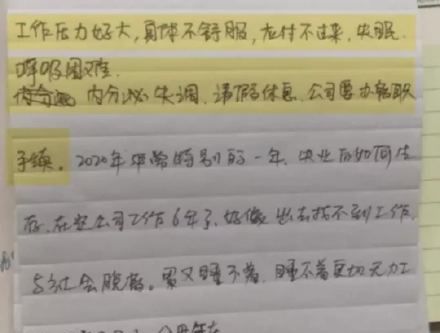 工作压力好大,身体不舒服,应付不过来,失眠
呼吸困难
内分泌失调,请假休息,公司要办辞职
手续。2020年非常特别的一年,失业后如何生
存,在空公司工作6年了,好像出去找不到工作,
与社会脱离。累又睡不着,睡不着更切无力工